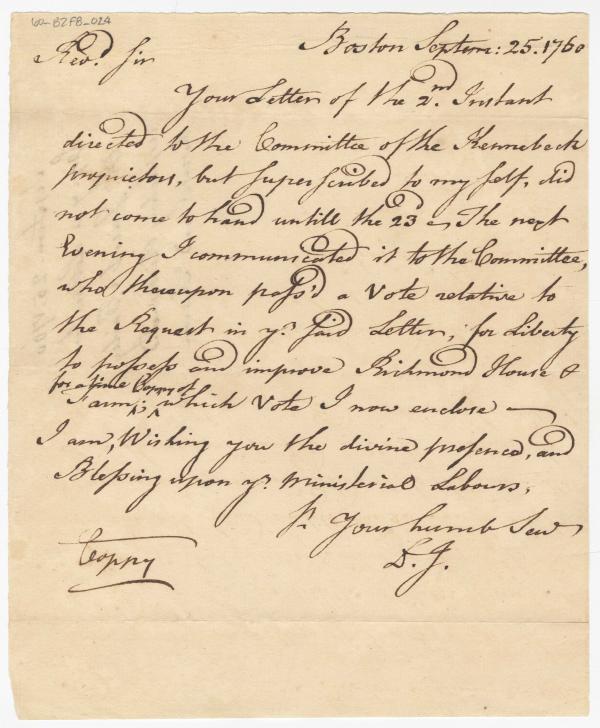 60-BZFB-024
Boston Septem: 25. 1760
Revd. Sir
Your Letter of the 2nd. Instant
directed to the Committee of the Kennebeck
proprietors, but superscribed to my self, did
not come to hand untill the 23d The next
Evening I communicated it to the Committee,
who thereupon pass'd a Vote relative to
the Request in yr. said Letter, for Liberty
to possess and improve Richmond House &
for a time Coppy of
Farm; which Vote I now enclose
I am, Wishing you the divine presence, and
Blessing upon yr. Ministerial Labours,
Sr. Your humb Serv
D. J.
Coppy